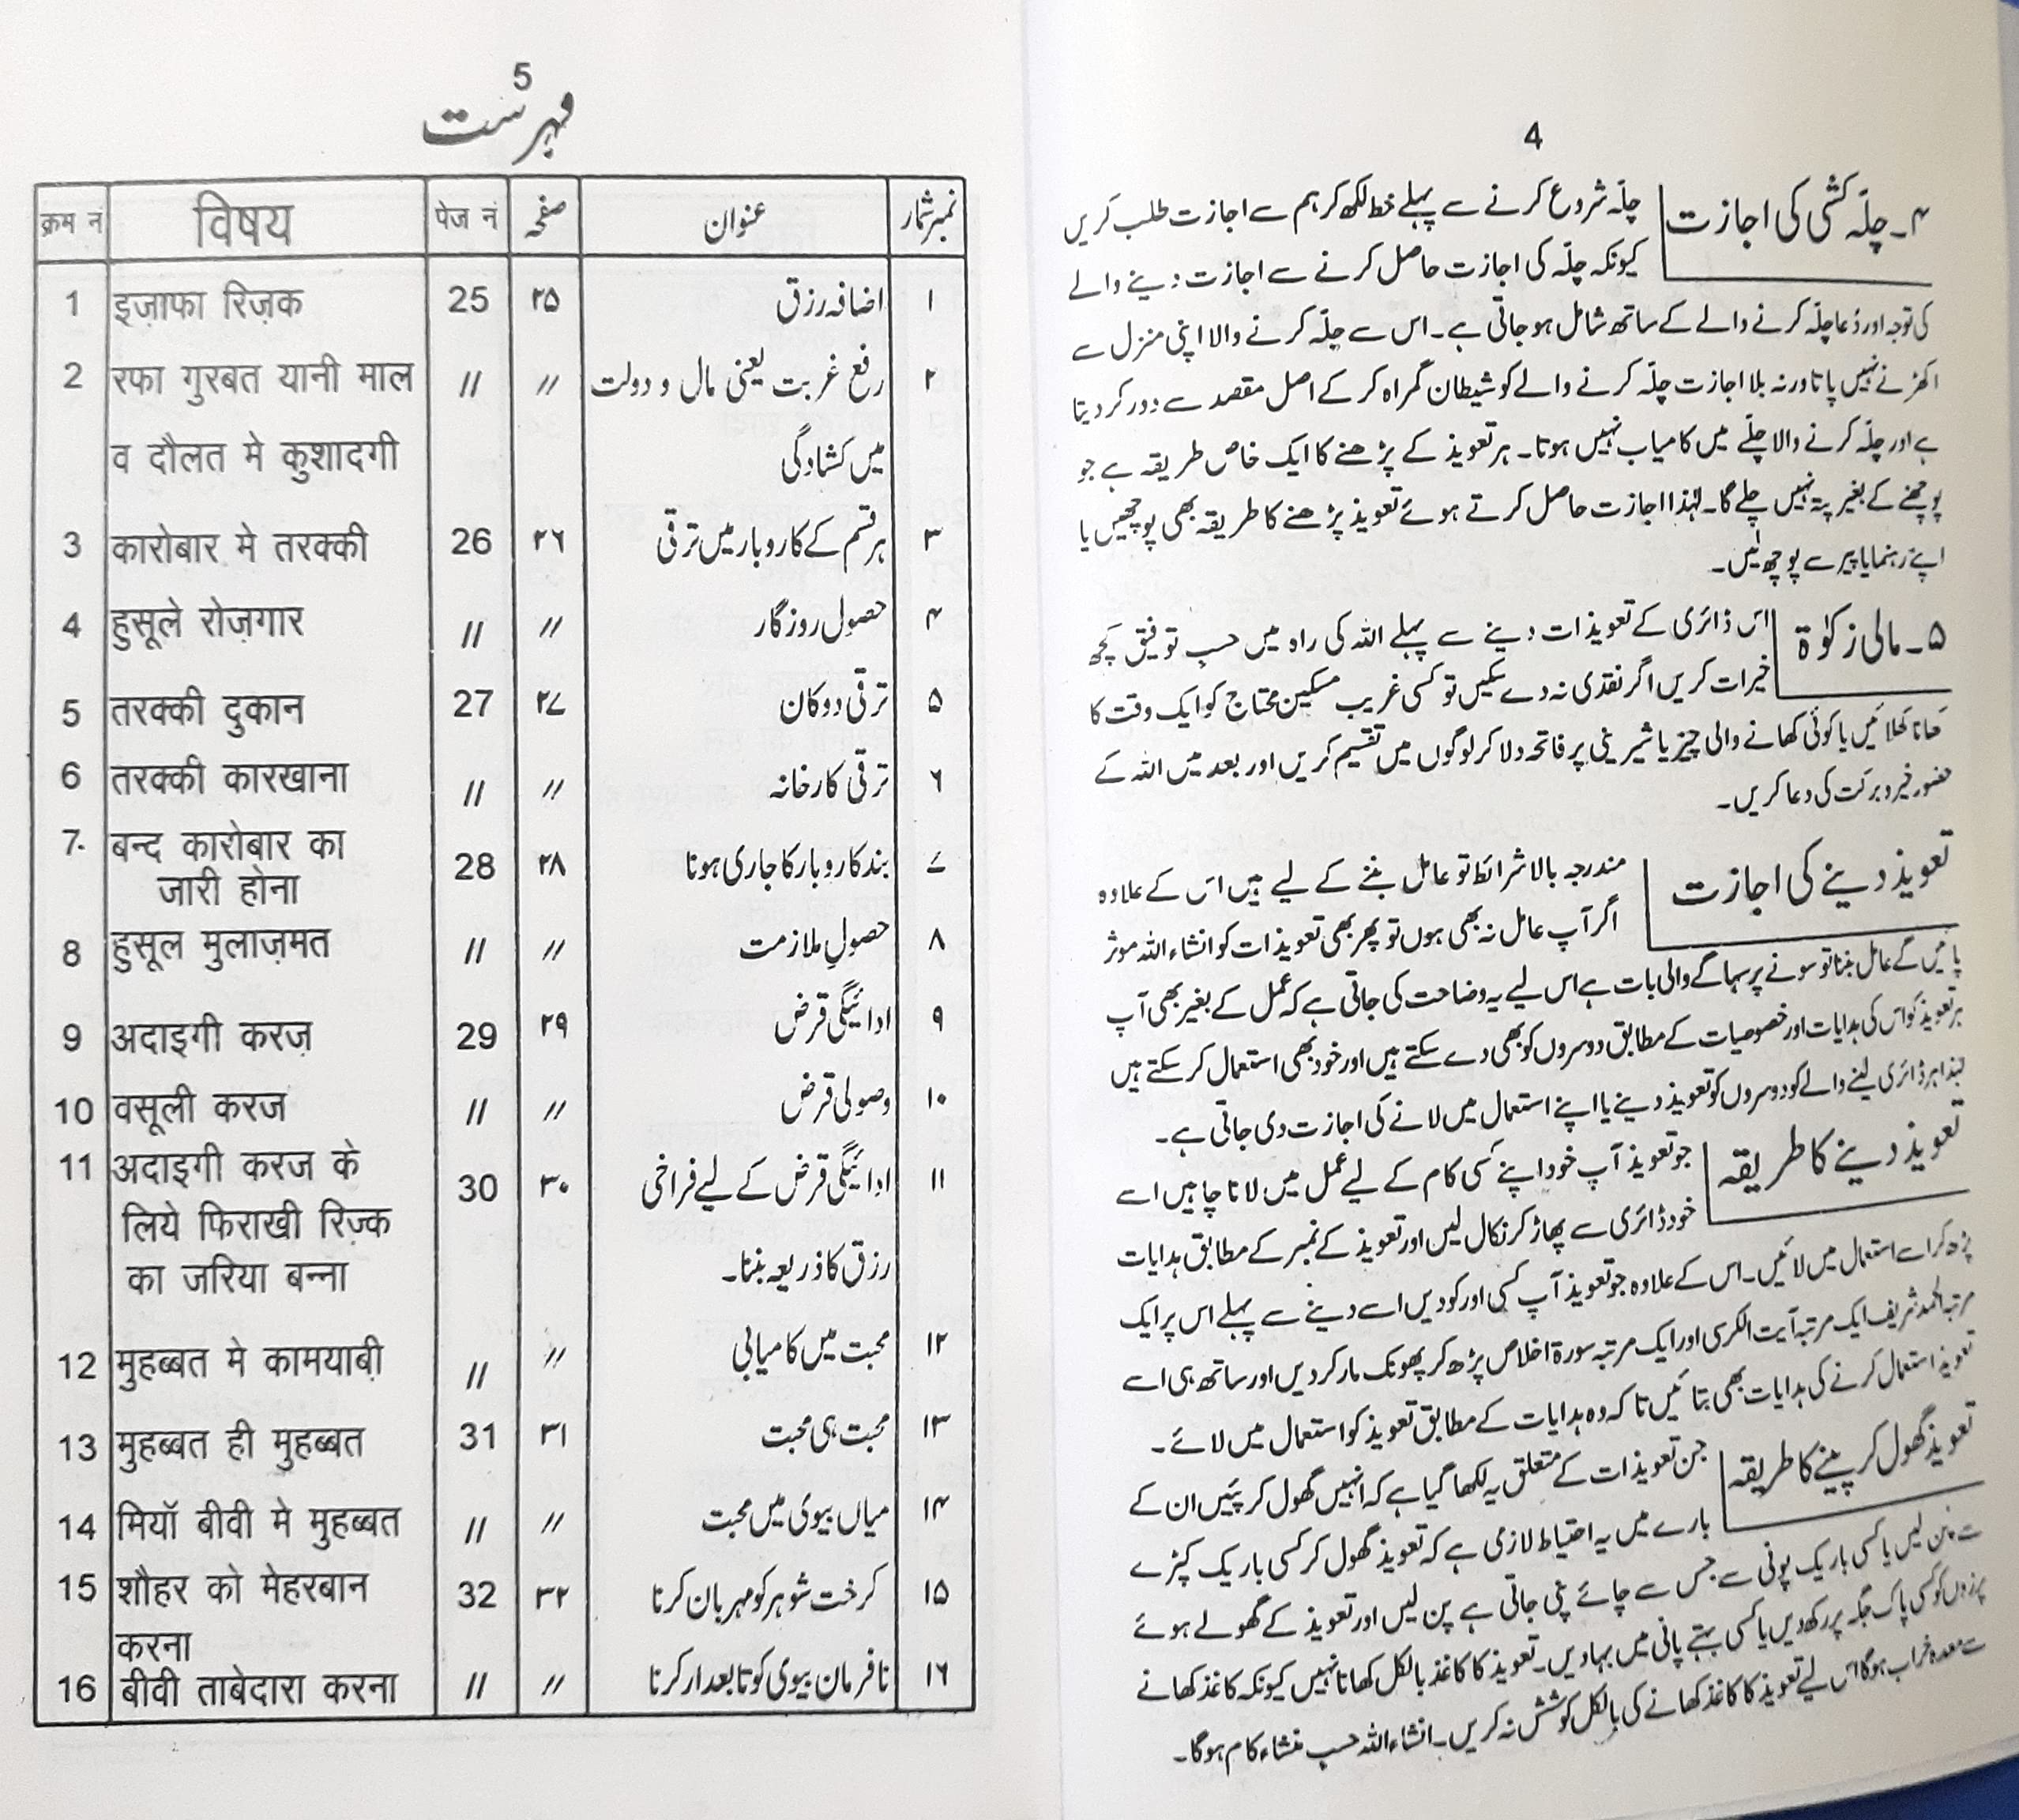 4
۴۔ چلّہ کشی کی اجازت
چلّہ شروع کرنے سے پہلے خط لکھ کر ہم سے اجازت طلب کریں
کیونکہ چلّہ کی اجازت حاصل کرنے سے اجازت دینے والے
کی توجہ اور دُعا چلّہ کرنے والے کے ساتھ شامل ہو جاتی ہے۔ اس سے چلّہ کرنے والا اپنی منزل سے
اکھڑنے نہیں پاتا ورنہ بلا اجازت چلّہ کرنے والے کو شیطان گمراہ کر کے اصل مقصد سے دور کر دیتا
ہے اور چلّہ کرنے والا چلّے میں کامیاب نہیں ہوتا۔ ہر تعویذ کے پڑھنے کا ایک خاص طریقہ ہے جو
پوچھنے کے بغیر پتہ نہیں چلے گا۔ لہٰذا اجازت حاصل کرتے ہوئے تعویذ پڑھنے کا طریقہ بھی پوچھیں یا
اپنے رہنما یا پیر سے پوچھ لیں۔
۵۔ مالی زکوٰۃ
اس ڈائری کے تعویذات دینے سے پہلے اللہ کی راہ میں حسب توفیق کچھ
خیرات کریں اگر نقدی نہ دے سکیں تو کسی غریب مسکین محتاج کو ایک وقت کا
کھانا کھلائیں یا کوئی کھانے والی چیز یا شیرینی پر فاتحہ دلا کر لوگوں میں تقسیم کریں اور بعد میں اللہ کے
حضور خیر و برکت کی دعا کریں۔
تعویذ دینے کی اجازت
مندرجہ بالا شرائط تو عامل بننے کے لیے ہیں اس کے علاوہ
اگر آپ عامل نہ بھی ہوں تو پھر بھی تعویذات کو انشاء اللہ موثر
پائیں گے عامل بننا تو سونے پر سہاگے والی بات ہے اس لیے یہ وضاحت کی جاتی ہے کہ عمل کے بغیر بھی آپ
ہر تعویذ کو اس کی ہدایات اور خصوصیات کے مطابق دوسروں کو بھی دے سکتے ہیں اور خود بھی استعمال کر سکتے ہیں
لہٰذا ہر ڈائری لینے والے کو دوسروں کو تعویذ دینے یا اپنے استعمال میں لانے کی اجازت دی جاتی ہے۔
تعویذ دینے کا طریقہ
جو تعویذ آپ خود اپنے کسی کام کے لیے عمل میں لانا چاہیں اسے
خود ڈائری سے پھاڑ کر نکال لیں اور تعویذ کے نمبر کے مطابق ہدایات
پڑھ کر اسے استعمال میں لائیں۔ اس کے علاوہ جو تعویذ آپ کسی اور کو دیں اسے دینے سے پہلے اس پر ایک
مرتبہ الحمد شریف ایک مرتبہ آیت الکرسی اور ایک مرتبہ سورۃ اخلاص پڑھ کر پھونک مار کر دیں اور ساتھ ہی اسے
تعویذ استعمال کرنے کی ہدایات بھی بتائیں تاکہ وہ ہدایات کے مطابق تعویذ کو استعمال میں لائے۔
تعویذ گھول کر پینے کا طریقہ
جن تعویذات کے متعلق یہ لکھا گیا ہے کہ انہیں گھول کر پئیں ان کے
بارے میں یہ احتیاط لازمی ہے کہ تعویذ گھول کر کسی باریک کپڑے
سے پن لیں یا کسی باریک پونی سے جس سے چائے پنی جاتی ہے پن لیں اور تعویذ کے گھولے ہوئے
پرزوں کو کسی پاک جگہ پر رکھ دیں یا کسی بہتے پانی میں بہا دیں۔ تعویذ کا کاغذ بالکل کھانا نہیں کیونکہ کاغذ کھانے
سے معدہ خراب ہوگا اس لیے تعویذ کا کاغذ کھانے کی بالکل کوشش نہ کریں۔ انشاء اللہ حسب منشاء کام ہوگا۔
5
فہرست
क्रम नं विषय पेज नं صفحہ عنوان نمبر شمار
1 इज़ाफा रिज़क 25 ۲۵ اضافہ رزق ۱
2 रफा गुरबत यानी माल // // رفع غربت یعنی مال و دولت ۲
व दौलत मे कुशादगी میں کشادگی
3 कारोबार मे तरक्की 26 ۲۶ ہر قسم کے کاروبار میں ترقی ۳
4 हुसूले रोज़गार // // حصول روزگار ۴
5 तरक्की दुकान 27 ۲۷ ترقی دوکان ۵
6 तरक्की कारखाना // // ترقی کارخانہ ۶
7. बन्द कारोबार का
जारी होना 28 ۲۸ بند کاروبار کا جاری ہونا ۷
8 हुसूल मुलाज़मत // // حصولِ ملازمت ۸
9 अदाइगी करज़ 29 ۲۹ ادائیگی قرض ۹
10 वसूली करज // // وصولی قرض ۱۰
11 अदाइगी करज के 30 ۳۰ ادائیگی قرض کے لیے فراخی ۱۱
लिये फिराखी रिज़्क
का जरिया बन्ना رزق کا ذریعہ بننا۔
12 मुहब्बत मे कामयाबी़ // // محبت میں کامیابی ۱۲
13 मुहब्बत ही मुहब्बत 31 ۳۱ محبت ہی محبت ۱۳
14 मियॉ बीवी मे मुहब्बत // // میاں بیوی میں محبت ۱۴
15 शौहर को मेहरबान 32 ۳۲ کرخت شوہر کو مہربان کرنا ۱۵
करना
16 बीवी ताबेदारा करना // // نافرمان بیوی کو تابعدار کرنا ۱۶